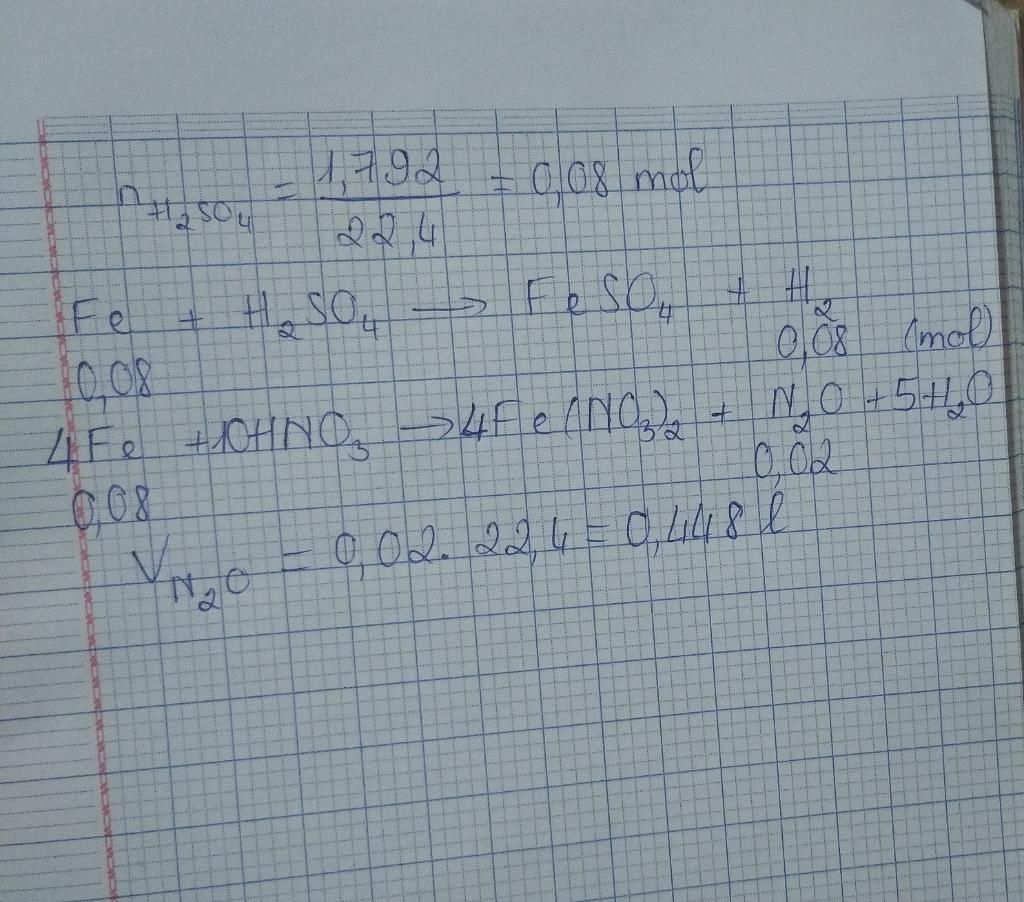 n H₂SO₄ = 1,792 / 22,4 = 0,08 mol
Fe + H₂SO₄ → FeSO₄ + H₂
0,08 0,08 (mol)
4Fe + 10HNO₃ → 4Fe(NO₃)₂ + N₂O + 5H₂O
0,08 0,02
V N₂O = 0,02. 22,4 = 0,448 l